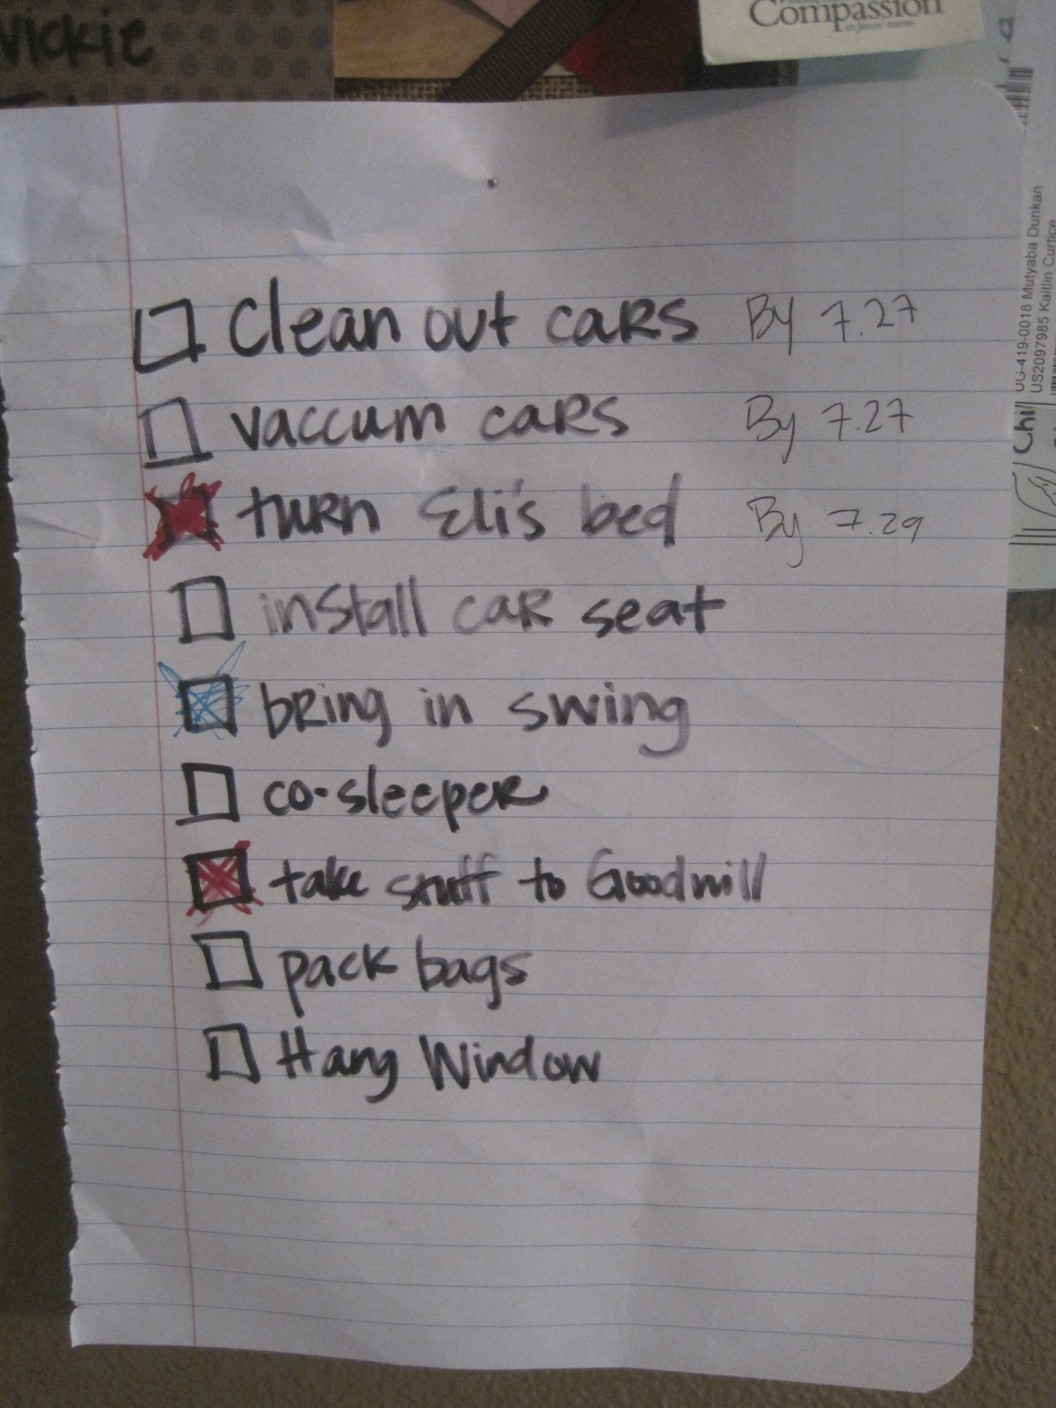 Vickie
Compassion
in Jesus' name
Clean out cars By 7.27
vaccum cars By 7.27
turn Eli's bed By 7.29
install car seat
bring in swing
co-sleeper
take stuff to Goodwill
pack bags
Hang Window
UG-419-0018 Mutyaba Dunkan
US2097985 Kaitlin Curtice
Chil